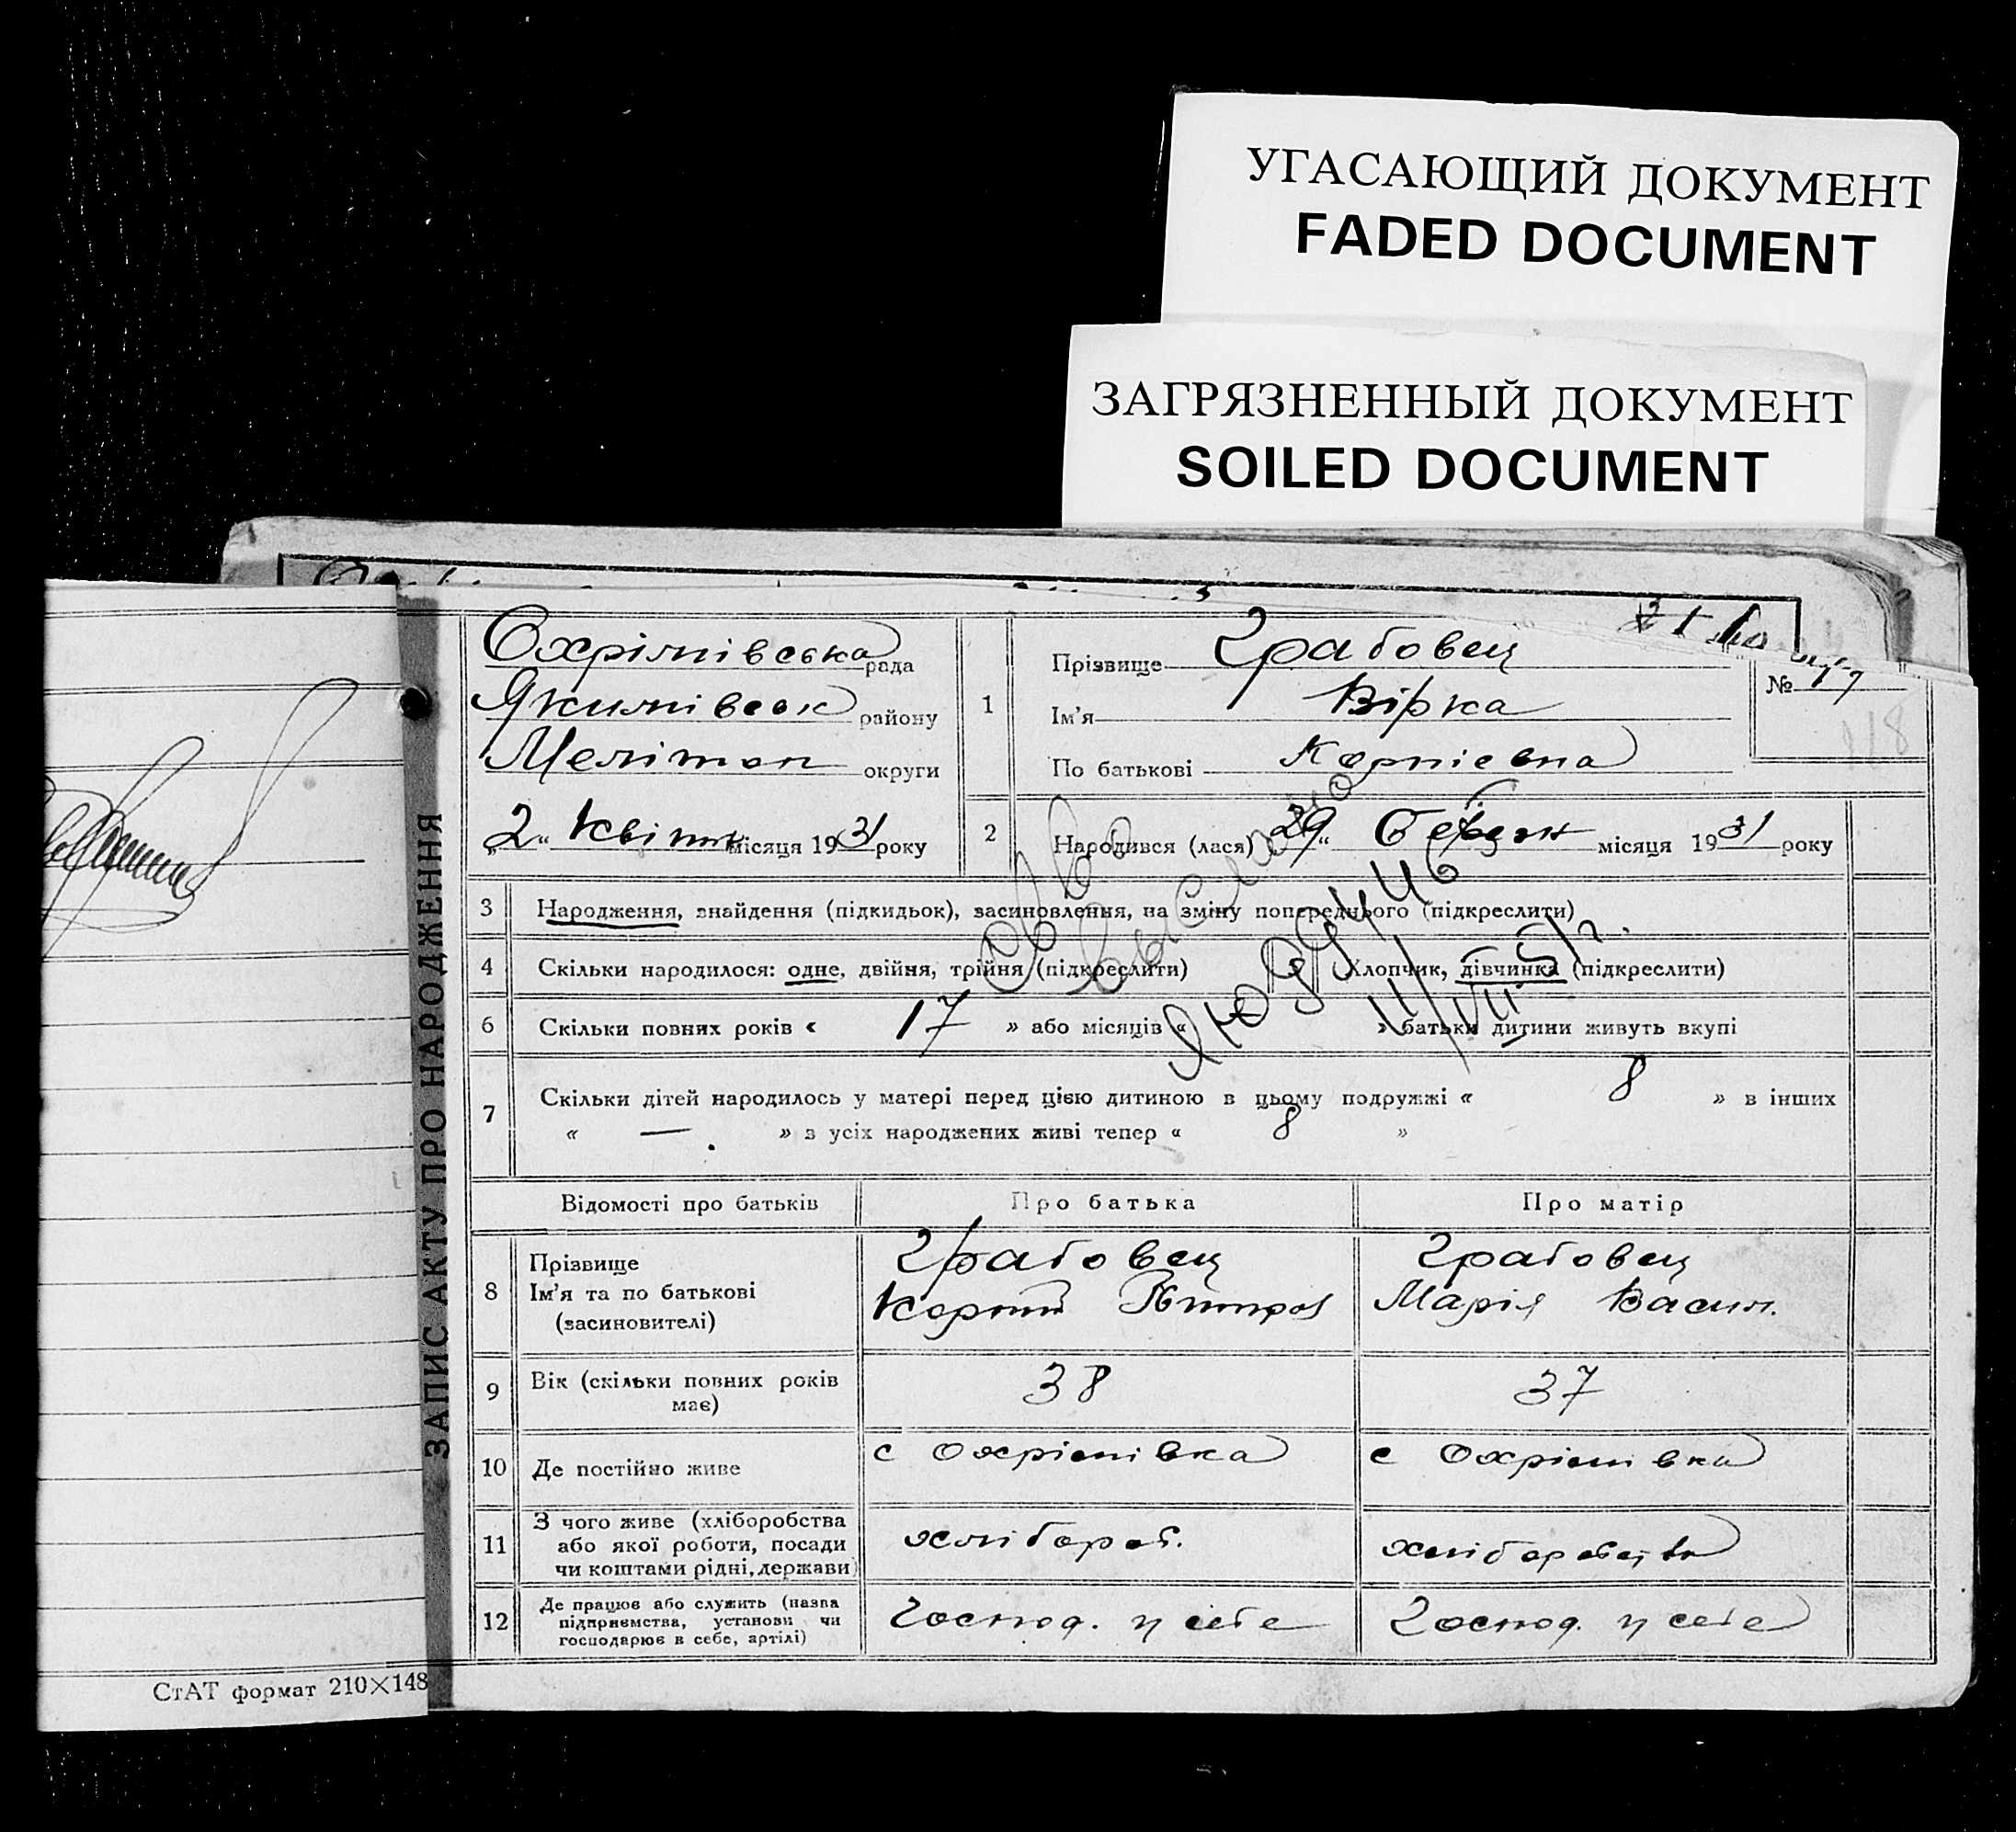 УГАСАЮЩИЙ ДОКУМЕНТ
FADED DOCUMENT
ЗАГРЯЗНЕННЫЙ ДОКУМЕНТ
SOILED DOCUMENT
ЗАПИС АКТУ ПРО НАРОДЖЕННЯ
Охрімівська рада
Якимівськ району
Мелітоп округи
„2“ Квітня місяця 1931 року
1 Прізвище Грабовец
Ім'я Вірка
По батькові Корніевна
№
118
2 Народився (лася) „29“ місяця 1931 року
3 Народження, знайдення (підкидьок), засиновлення, на зміну попереднього (підкреслити)
4 Скільки народилося: одне, двійня, трійня (підкреслити) Хлопчик, дівчинка (підкреслити)
6 Скільки повних років « 17 » або місяців « » батьки дитини живуть вкупі
7 Скільки дітей народилось у матері перед цією дитиною в цьому подружжі « 8 » в інших
« — » з усіх народжених живі тепер « 8 »
Відомості про батьків Про батька Про матір
8 Прізвище
Ім'я та по батькові
(засиновителі)
Грабовец
Корній
Грабовец
Марія Васил.
9 Вік (скільки повних років
має)
38
37
10 Де постійно живе
с Охрімівка
с Охрімівка
11 З чого живе (хліборобства
або якої роботи, посади
чи коштами рідні, держави)
хлібороб.
12 Де працює або служить (назва
підприємства, установи чи
господарює в себе, артілі)
Господ. у себе
Господ. у себе
СтАТ формат 210×148